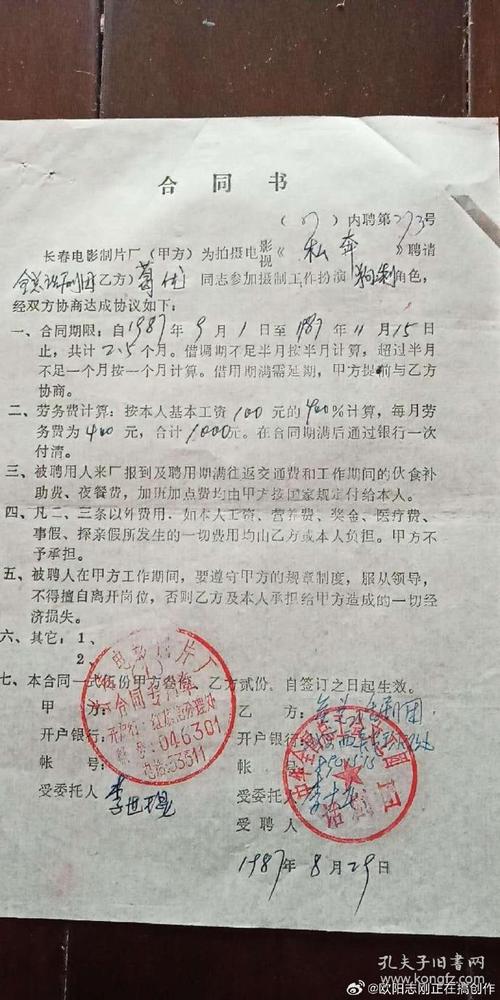 合同书
(87)内聘第273号
长春电影制片厂(甲方)为拍摄电影视《私奔》聘请
全总话剧团(乙方)葛优同志参加摄制工作扮演狗剩角色,
经双方协商达成协议如下:
一、合同期限:自1987年9月1日至1987年11月15日
止,共计2.5个月。借调期不足半月按半月计算,超过半月
不足一个月按一个月计算。借用期满需延期,甲方提前与乙方
协商。
二、劳务费计算:按本人基本工资100元的400%计算,每月劳
务费为400元,合计1000元。在合同期满后通过银行一次
付清。
三、被聘用人来厂报到及聘用期满往返交通费和工作期间的伙食补
助费、夜餐费,加班加点费均由甲方按国家规定付给本人。
四、凡二、三条以外费用,如本人工资、营养费、奖金、医疗费、
事假、探亲假所发生的一切费用均由乙方或本人负担。甲方不
予承担。
五、被聘人在甲方工作期间,要遵守甲方的规章制度,服从领导,
不得擅自离开岗位,否则乙方及本人承担给甲方造成的一切经
济损失。
六、其它:1、
2、
七、本合同一式伍份甲方叁份,乙方贰份。自签订之日起生效。
甲方:
开户银行:
帐号:
受委托人
电影制片厂
合同专用章
046301
电话:53311
乙方:
开户银行:
帐号:
受委托人
受聘人
1987年8月29日
孔夫子旧书网
@欧阳志刚正在搞创作